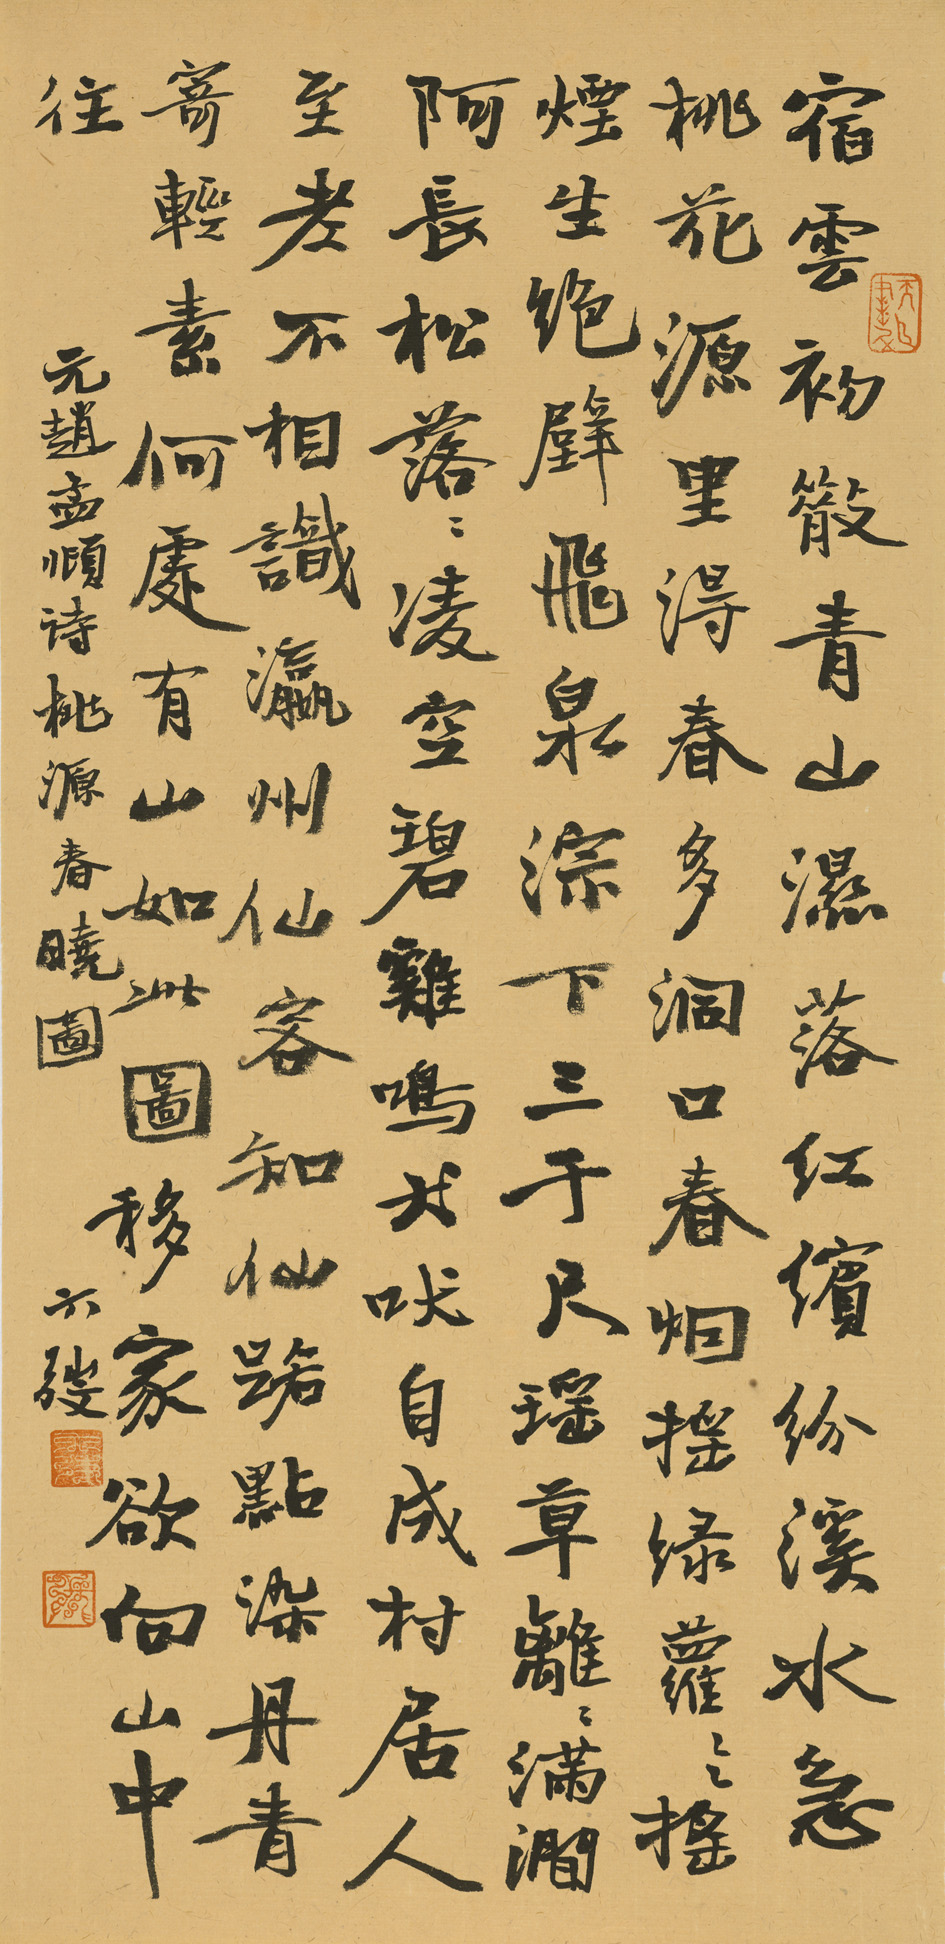 宿雲初散青山濕落紅繽紛溪水急
桃花源里得春多洞口春烟摇绿蘿〻摇
煙生绝壁飛泉淙下三千尺瑶草離〻满澗
阿長松落〻凌空碧雞鳴犬吠自成村居人
至老不相識瀛州仙客知仙路點染丹青
寄輕素何處有山如此圖移家欲向山中
往
元趙孟頫诗桃源春曉圖
六